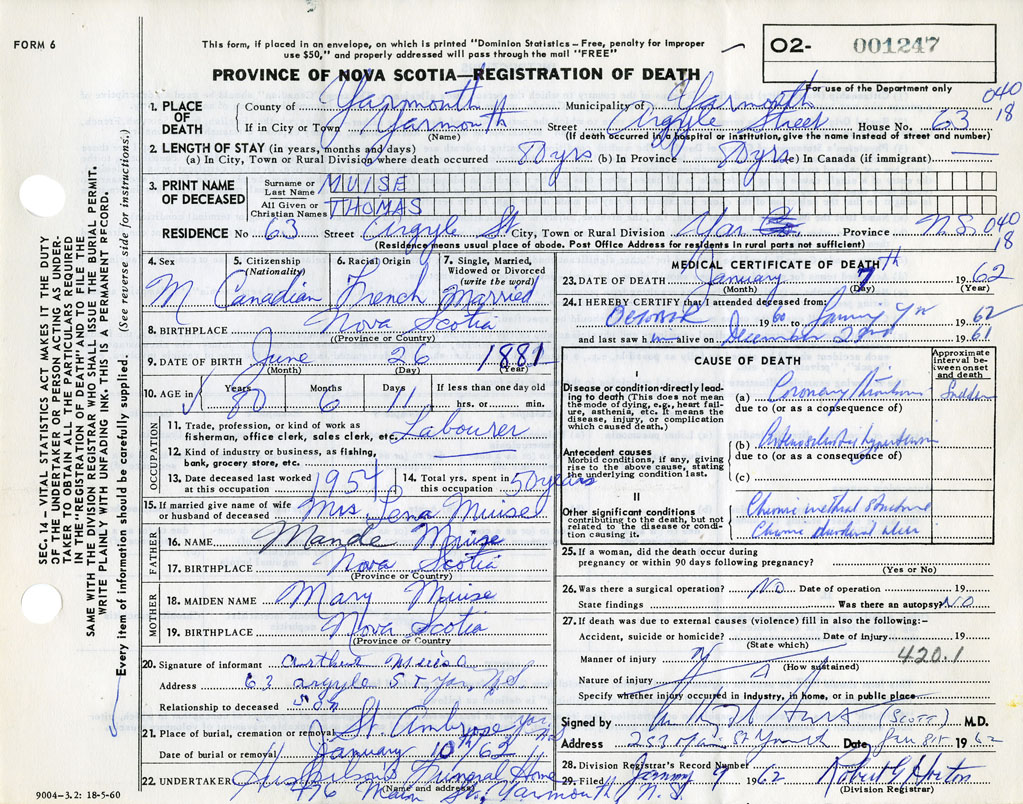 FORM 6
This form, if placed in an envelope, on which is printed "Dominion Statistics—Free, penalty for improper
use $50," and properly addressed will pass through the mail "FREE"
O2- 001247
For use of the Department only
PROVINCE OF NOVA SCOTIA—REGISTRATION OF DEATH
040
18
1. PLACE OF DEATH
County of Yarmouth Municipality of Yarmouth
If in City or Town Yarmouth Street Argyle Street House No. 63
(Name) (If death occurred in a hospital or institution, give the name instead of street and number)
2. LENGTH OF STAY (in years, months and days)
(a) In City, Town or Rural Division where death occurred 80 yrs (b) In Province 80 yrs (c) In Canada (if immigrant) —
3. PRINT NAME OF DECEASED
Surname or Last Name MUISE
All Given or Christian Names THOMAS
RESIDENCE No 63 Street Argyle St. City, Town or Rural Division Yar Province N.S. 040
18
(Residence means usual place of abode. Post Office Address for residents in rural parts not sufficient)
4. Sex M
5. Citizenship (Nationality) Canadian
6. Racial Origin French
7. Single, Married, Widowed or Divorced (write the word) Married
8. BIRTHPLACE Nova Scotia
(Province or Country)
9. DATE OF BIRTH June 26 1881
(Month) (Day) (Year)
10. AGE in Years 80 Months 6 Days 11 If less than one day old
hrs. or min.
OCCUPATION
11. Trade, profession, or kind of work as
fisherman, office clerk, sales clerk, etc. Labourer
12. Kind of industry or business, as fishing,
bank, grocery store, etc.
13. Date deceased last worked
at this occupation 1954
14. Total yrs. spent in
this occupation 50 years
15. If married give name of wife
or husband of deceased Mrs Lena Muise
FATHER
16. NAME Mande Muise
17. BIRTHPLACE Nova Scotia
(Province or Country)
MOTHER
18. MAIDEN NAME Mary Muise
19. BIRTHPLACE Nova Scotia
(Province or Country)
20. Signature of informant Arthur Muise
Address 63 Argyle St Yar, N.S
Relationship to deceased Son
21. Place of burial, cremation or removal St Ambrose Yar. N.S
Date of burial or removal January 10th 62
22. UNDERTAKER Funeral Home
(Name and address)
Main St. Yarmouth N.S.
9004—3.2: 18-5-60
MEDICAL CERTIFICATE OF DEATH
23. DATE OF DEATH January 7th 1962
(Month) (Day) (Year)
24. I HEREBY CERTIFY that I attended deceased from:
October 1960 to 1962
and last saw him alive on December 22nd 1961
CAUSE OF DEATH
Approximate interval between onset and death
I
Disease or condition directly leading to death (This does not mean the mode of dying, e.g., heart failure, asthenia, etc. It means the disease, injury, or complication which caused death.)
(a) Coronary thrombosis Sudden
due to (or as a consequence of)
Antecedent causes
Morbid conditions, if any, giving rise to the above cause, stating the underlying condition last.
(b) hypertension
due to (or as a consequence of)
(c)
II
Other significant conditions
contributing to the death, but not related to the disease or condition causing it.
Chronic urethral stricture
Chronic duodenal ulcer
25. If a woman, did the death occur during
pregnancy or within 90 days following pregnancy?
(Yes or No)
26. Was there a surgical operation? NO Date of operation 19
State findings Was there an autopsy? NO
27. If death was due to external causes (violence) fill in also the following:-
Accident, suicide or homicide? Date of injury 19
(State which)
Manner of injury 420.1
(How sustained)
Nature of injury
Specify whether injury occurred in industry, in home, or in public place
Signed by (SCOTT) M.D.
Address 263 Main St Date Jan 8th 1962
28. Division Registrar's Record Number
29. Filed January 9 1962 Robert G Horton
(Division Registrar)
SEC. 14—VITAL STATISTICS ACT MAKES IT THE DUTY
OF THE UNDERTAKER OR PERSON ACTING AS UNDER-
TAKER TO OBTAIN ALL THE PARTICULARS REQUIRED
IN THE "REGISTRATION OF DEATH" AND TO FILE THE
SAME WITH THE DIVISION REGISTRAR WHO SHALL ISSUE THE BURIAL PERMIT.
WRITE PLAINLY WITH UNFADING INK. THIS IS A PERMANENT RECORD.
Every item of information should be carefully supplied. (See reverse side for instructions.)